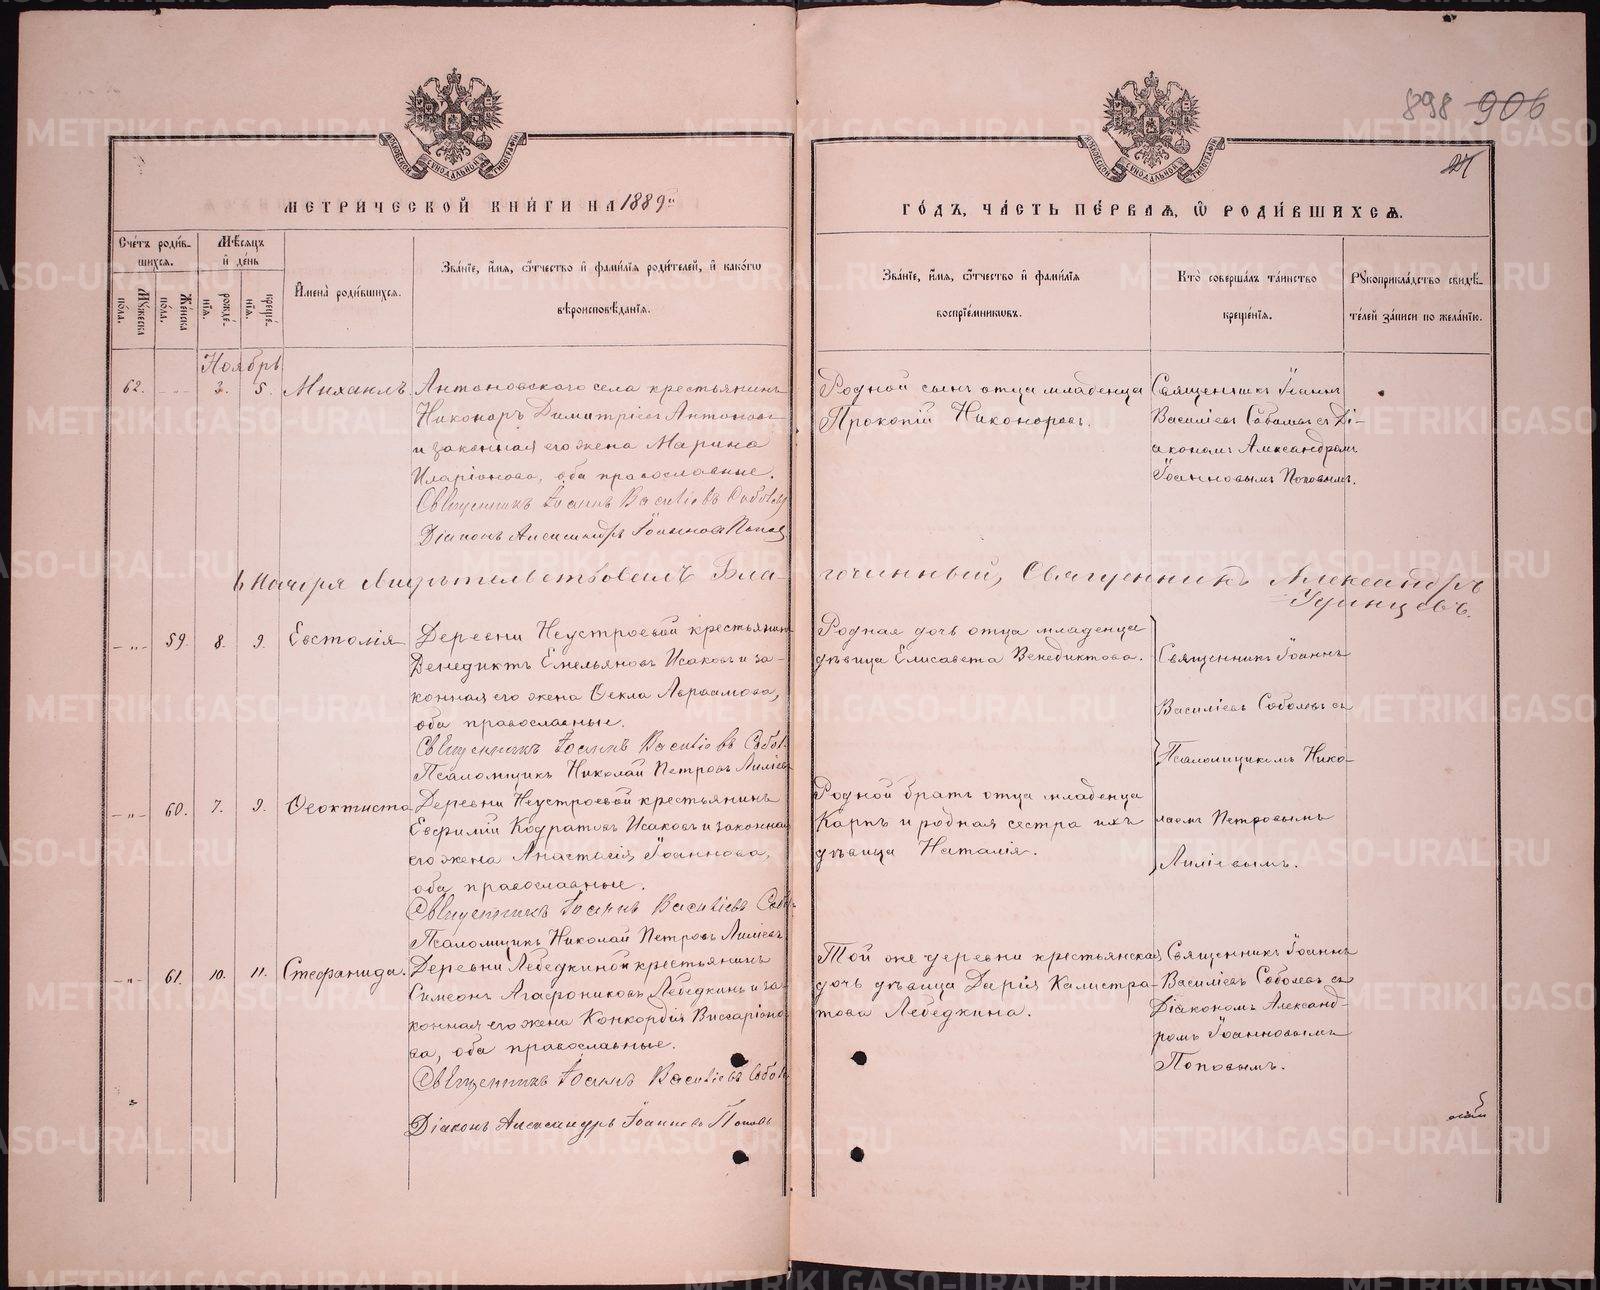 898 906
27
МЕТРИ́ЧЕСКОЙ КНИ́ГИ НА 1889й
ГО́ДЪ, ЧА́СТЬ ПЕ́РВАѦ, Ѽ РОДИ́ВШИХСѦ.
Сче́тъ роди́в-
шихсѧ.
Мꙋ́жеска по́ла.
Же́нска по́ла.
Мѣ́сѧцъ
и҆ де́нь
рожде́нїѧ.
креще́нїѧ.
И҆мена̀ роди́вшихсѧ.
Зва́нїе, и҆́мѧ, ѻ҆́тчество и҆ фами́лїѧ роди́телей, и҆ како́гѡ
вѣроисповѣ́данїѧ.
Зва́нїе, и҆́мѧ, ѻ҆́тчество и҆ фами́лїѧ
воспрїе́мникѡвъ.
Кто̀ соверша́лъ та́инство
креще́нїѧ.
Рꙋкоприкла́дство свидѣ́-
телей за́писи по жела́нїю.
Ноябрь
62. 3. 5. Михаилъ
Антоновскаго села крестьянинъ
Никоноръ Димитріевъ Антоновъ
и законная его жена Марина
Иларіонова, оба православные.
Священникъ Іоаннъ Василіевъ Соболев
Діаконъ Александръ Іоанновъ Попов
Родной сынъ отца младенца
Прокопій Никоноровъ.
Священникъ Іоаннъ
Василіевъ Соболевъ съ Ді-
акономъ Александромъ
Іоанновымъ Поповымъ.
6 Ноября Свидѣтельствовалъ Бла- гочинный, Священникъ Александръ
Удинцевъ.
-"- 59. 8. 9. Евстолія
Деревни Неустроевой крестьянин
Венедиктъ Емельяновъ Исаковъ и за-
конная его жена Ѳекла Авраамова,
оба православные.
Священникъ Іоаннъ Василіевъ Собол
Псаломщикъ Николай Петровъ Лиліев
Родная дочь отца младенца
дѣвица Елисавета Венедиктова.
Священникъ Іоаннъ
Василіевъ Соболевъ съ
Псаломщикомъ Нико-
лаемъ Петровымъ
Лиліевымъ.
-"- 60. 7. 9. Ѳеоктиста
Деревни Неустроевой крестьянинъ
Евфимій Кодратовъ Исаковъ и законная
его жена Анастасія Іоаннова,
оба православные.
Священникъ Іоаннъ Василіевъ Собо
Псаломщикъ Николай Петровъ Лиліевъ
Родной братъ отца младенца
Карпъ и родная сестра ихъ
дѣвица Наталія.
-"- 61. 10. 11. Стефанида.
Деревни Лебедкиной крестьянинъ
Симеонъ Агафониковъ Лебедкинъ и за-
конная его жена Конкордія Виссаріоно-
ва, оба православные.
Священникъ Іоаннъ Василіевъ Собол
Діаконъ Александръ Іоанновъ Поповъ
Той же деревни крестьянская
дочь дѣвица Дарія Калистра-
това Лебедкина.
Священникъ Іоаннъ
Василіевъ Соболевъ съ
Діакономъ Александ-
ромъ Іоанновымъ
Поповымъ.
METRIKI.GASO-URAL.RU